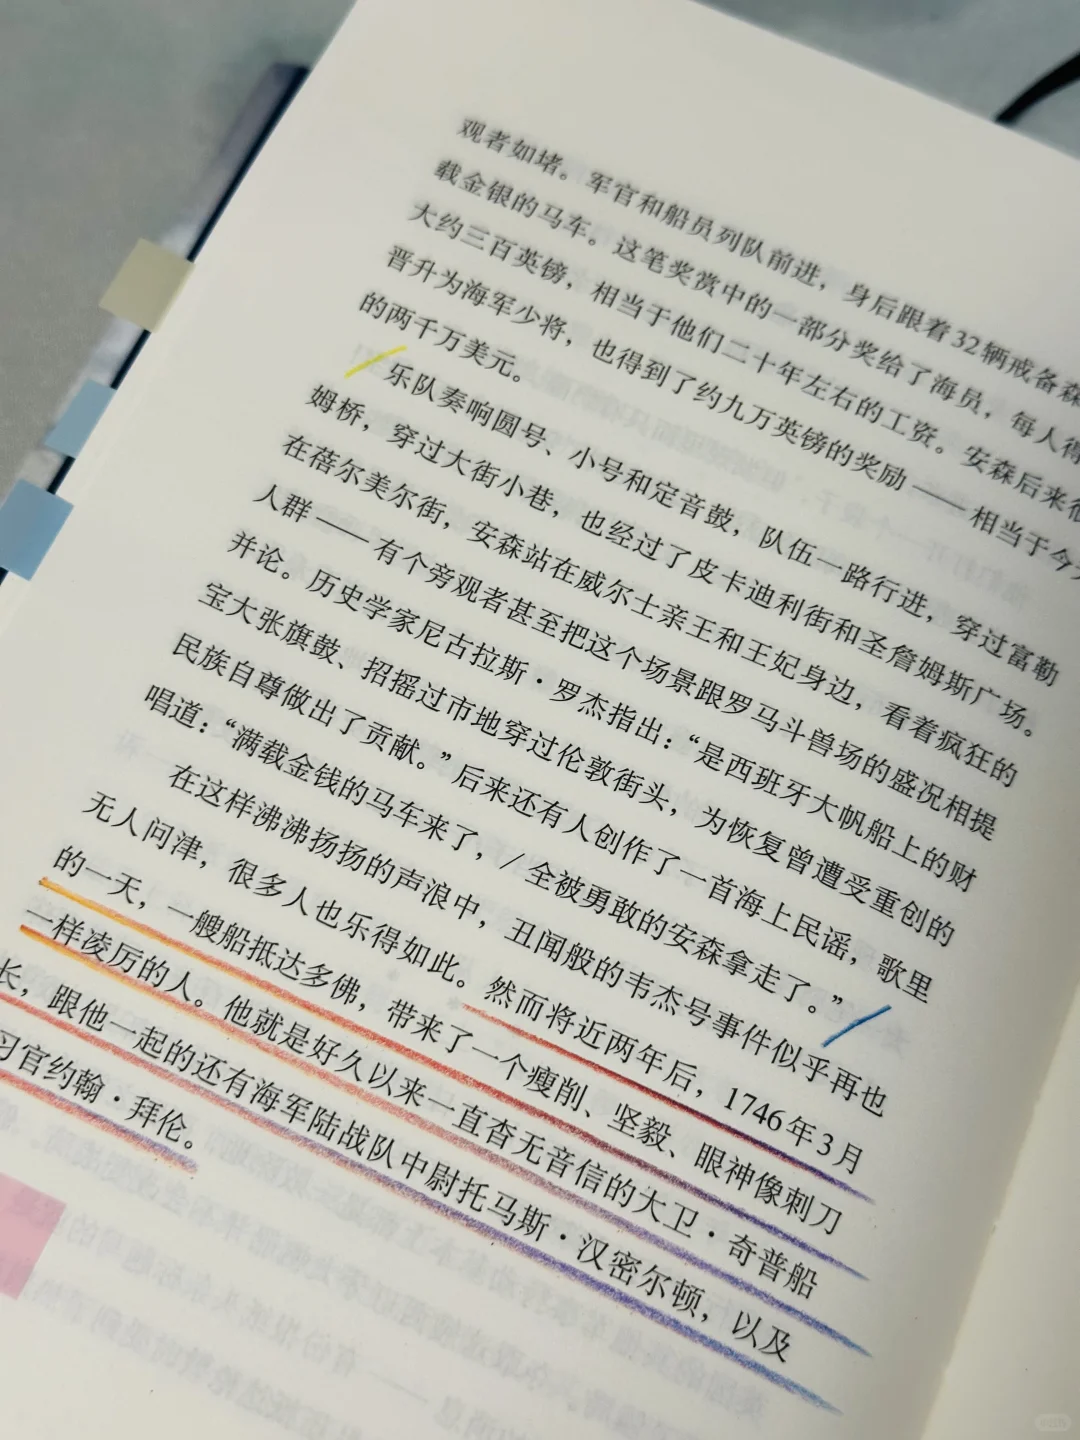 观者如堵。军官和船员列队前进，身后跟着32辆戒备森
载金银的马车。这笔奖赏中的一部分奖给了海员，每人得
大约三百英镑，相当于他们二十年左右的工资。安森后来很
晋升为海军少将，也得到了约九万英镑的奖励——相当于今天
的两千万美元。
乐队奏响圆号、小号和定音鼓，队伍一路行进，穿过富勒
姆桥，穿过大街小巷，也经过了皮卡迪利街和圣詹姆斯广场。
在蓓尔美尔街，安森站在威尔士亲王和王妃身边，看着疯狂的
人群——有个旁观者甚至把这个场景跟罗马斗兽场的盛况相提
并论。历史学家尼古拉斯·罗杰指出：“是西班牙大帆船上的财
宝大张旗鼓、招摇过市地穿过伦敦街头，为恢复曾遭受重创的
民族自尊做出了贡献。”后来还有人创作了一首海上民谣，歌里
唱道：“满载金钱的马车来了，/全被勇敢的安森拿走了。”
在这样沸沸扬扬的声浪中，丑闻般的韦杰号事件似乎再也
无人问津，很多人也乐得如此。然而将近两年后，1746年3月
的一天，一艘船抵达多佛，带来了一个瘦削、坚毅、眼神像刺刀
一样凌厉的人。他就是好久以来一直杳无音信的大卫·奇普船
长，跟他一起的还有海军陆战队中尉托马斯·汉密尔顿，以及
习官约翰·拜伦。